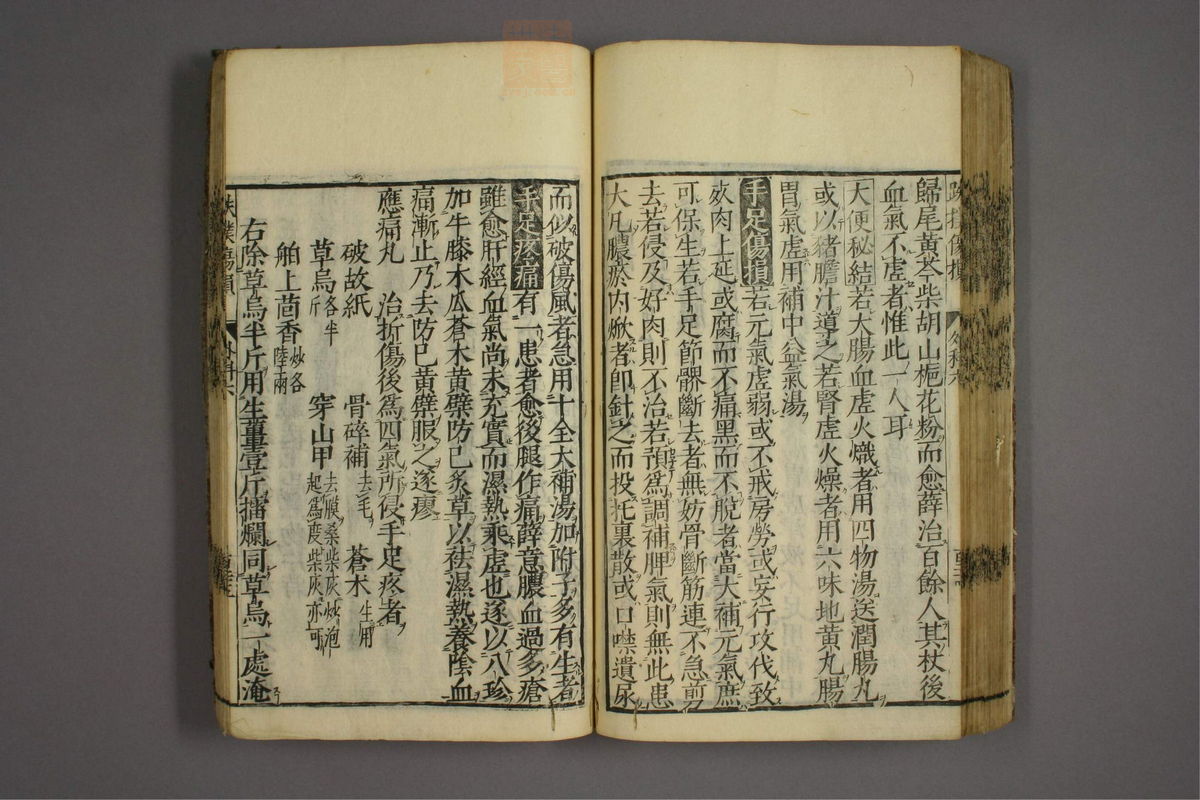 歸尾黃芩柴胡山梔花粉而愈薛治百餘人其杖後
血氣不虛者惟此一人耳
大便秘結若大腸血虛火熾者用四物湯送潤腸丸
或以猪膽汁導之若腎虛火燥者用六味地黃丸腸
胃氣虛用補中益氣湯
手足傷損若元氣虛弱或不戒房勞或妄行攻伐致
死肉上延或腐而不痛黑而不脫者當大補元氣庶
可保生若手足節骱斷去者無妨骨斷筋連不急剪
去若侵及好肉則不治若預為調補脾氣則無此患
大凡膿瘀內焮者即針之而投托裏散或口噤遺尿
而似破傷風者急用十全大補湯加附子多有生者
手足疼痛有一患者愈後腿作痛薛意膿血過多瘡
雖愈肝經血氣尚未充實而濕熱乘虛也遂以八珍
加牛膝木瓜蒼朮黃蘗防己炙草以祛濕熱養陰血
痛漸止乃去防己黃蘗服之遂瘳
應痛丸　治折傷後為四氣所侵手足疼者
破故紙　骨碎補去毛　蒼朮生用
草烏各半斤　穿山甲去膜桑柴灰炒泡起為度柴灰亦可
舶上茴香炒各陸兩
右除草烏半斤用生薑壹斤擂爛同草烏一處淹
跌撲傷損
外科六